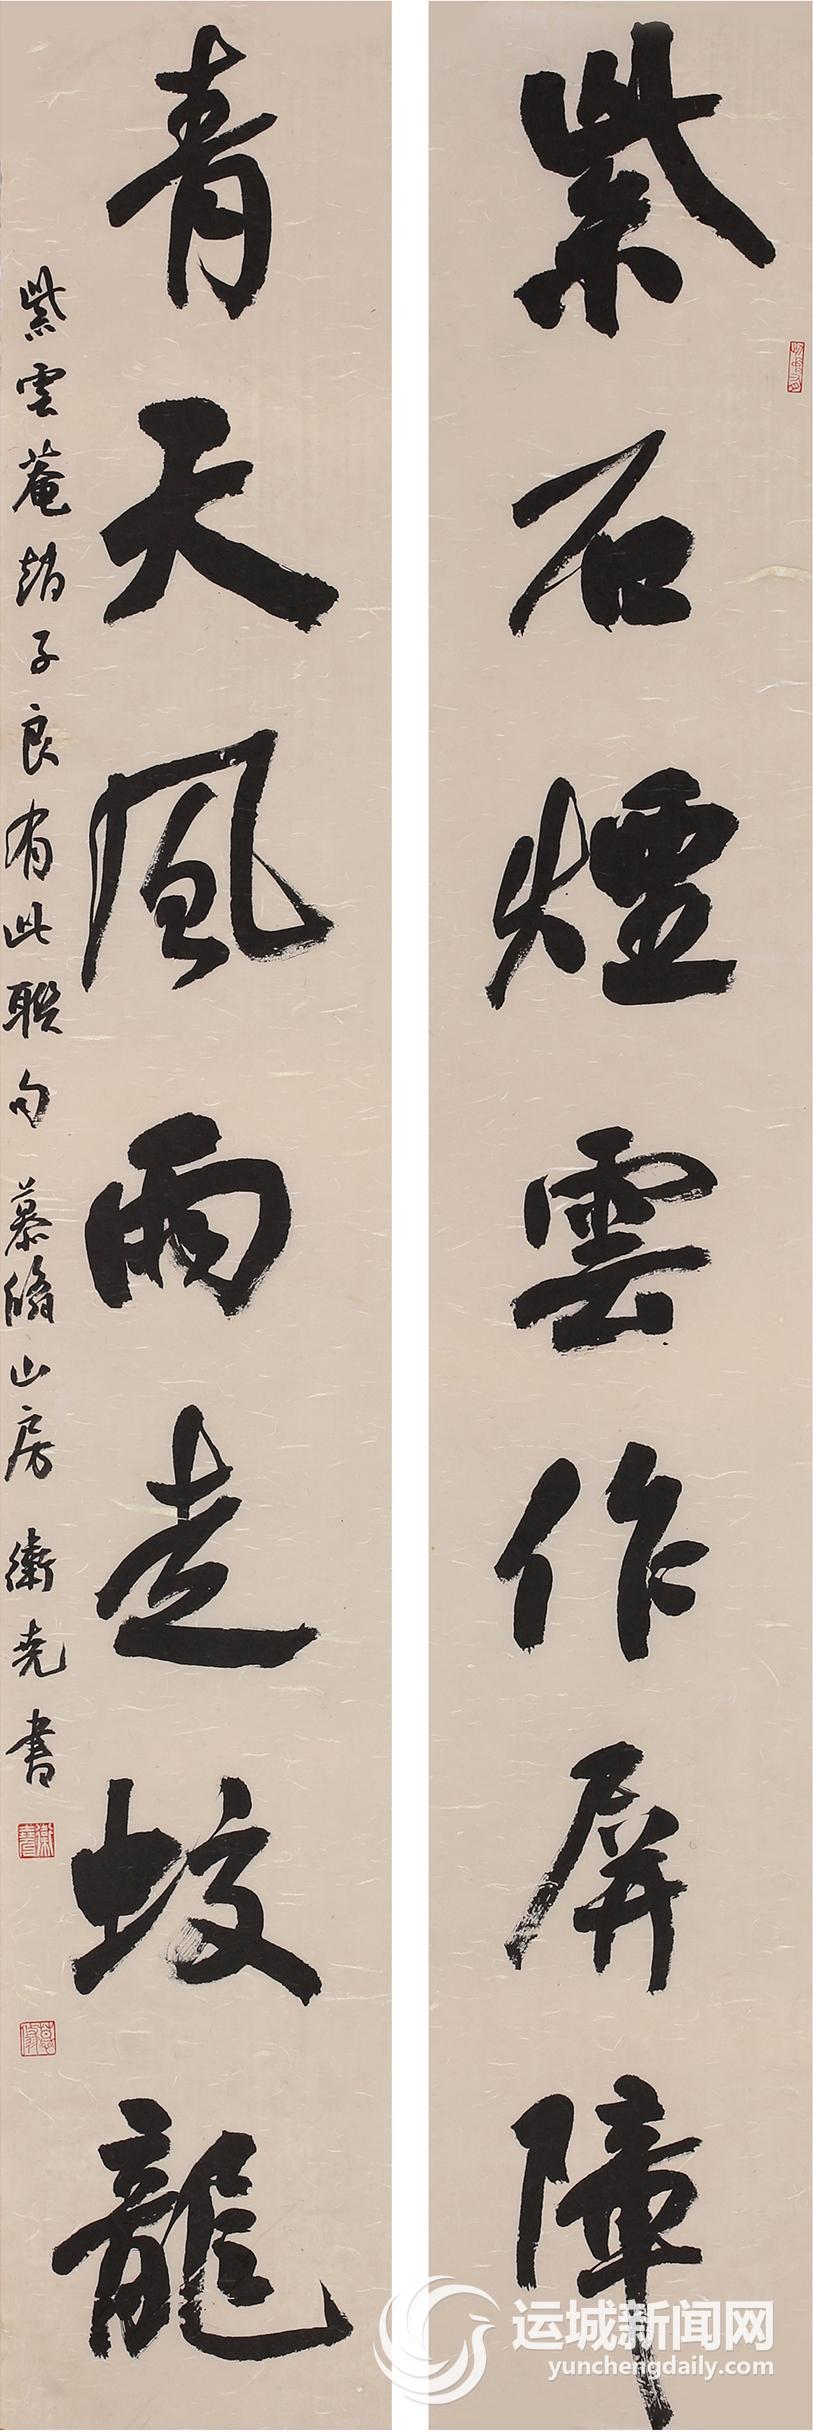 紫石煙雲作屏障
青天風雨走蛟龍
紫雲菴趙子良有此聯句 慕脩山房 衛堯書
运城新闻网
yunchengdaily.com